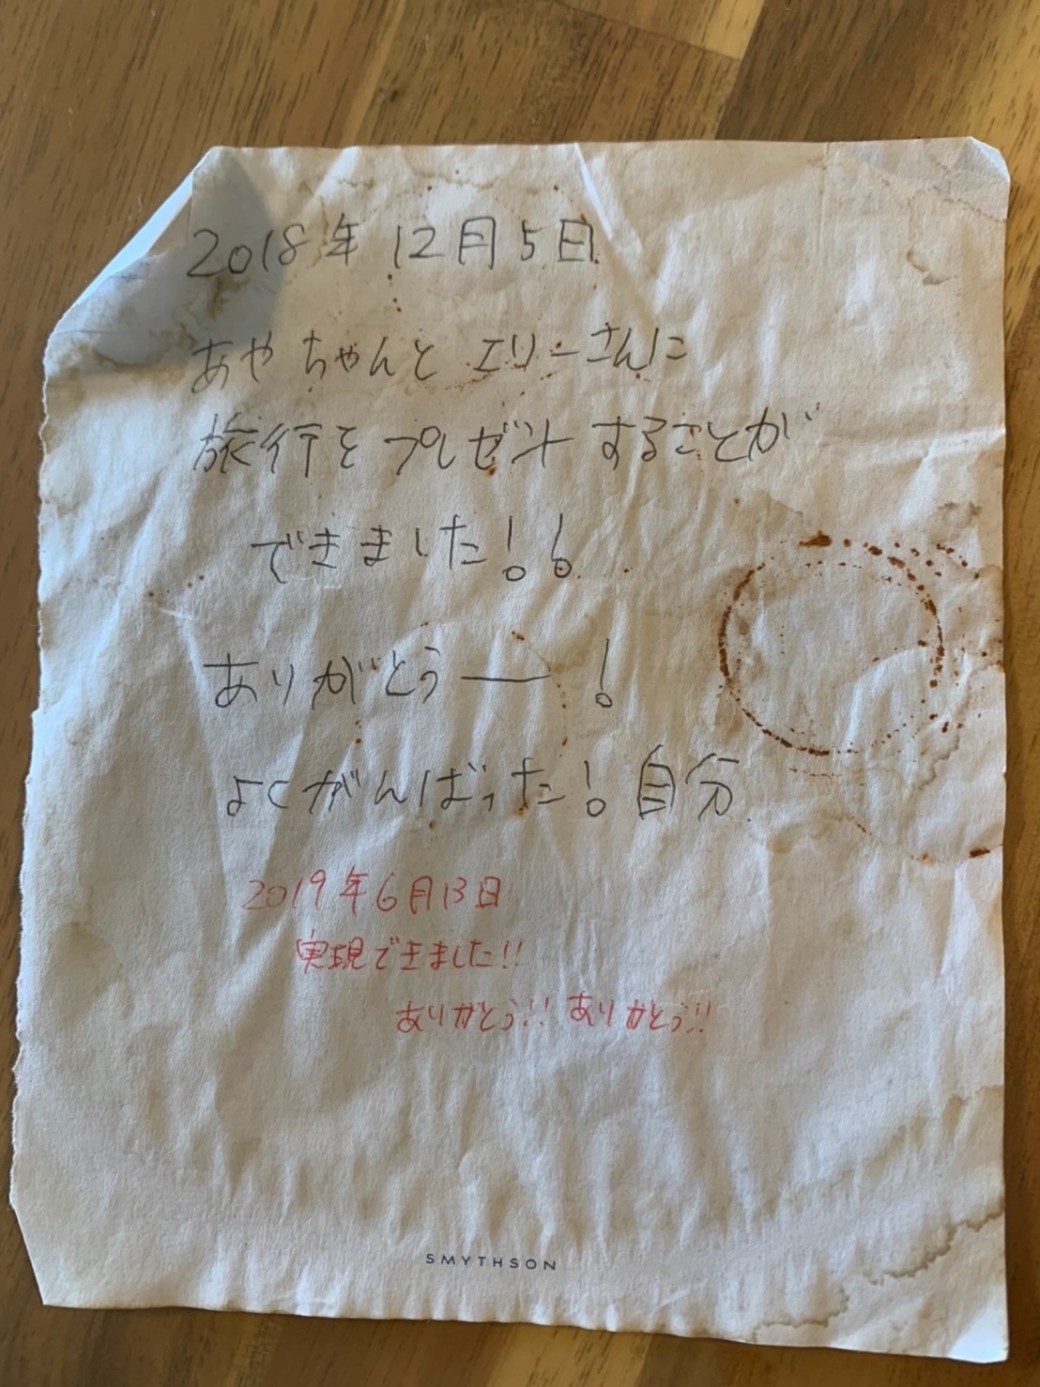 2018年 12月5日
あやちゃんと エリーさんに
旅行を プレゼント することが
できました!!
ありがとうー!
よくがんばった! 自分
2019年6月13日
実現できました!!
ありがとう!! ありがとう!!
SMYTHSON